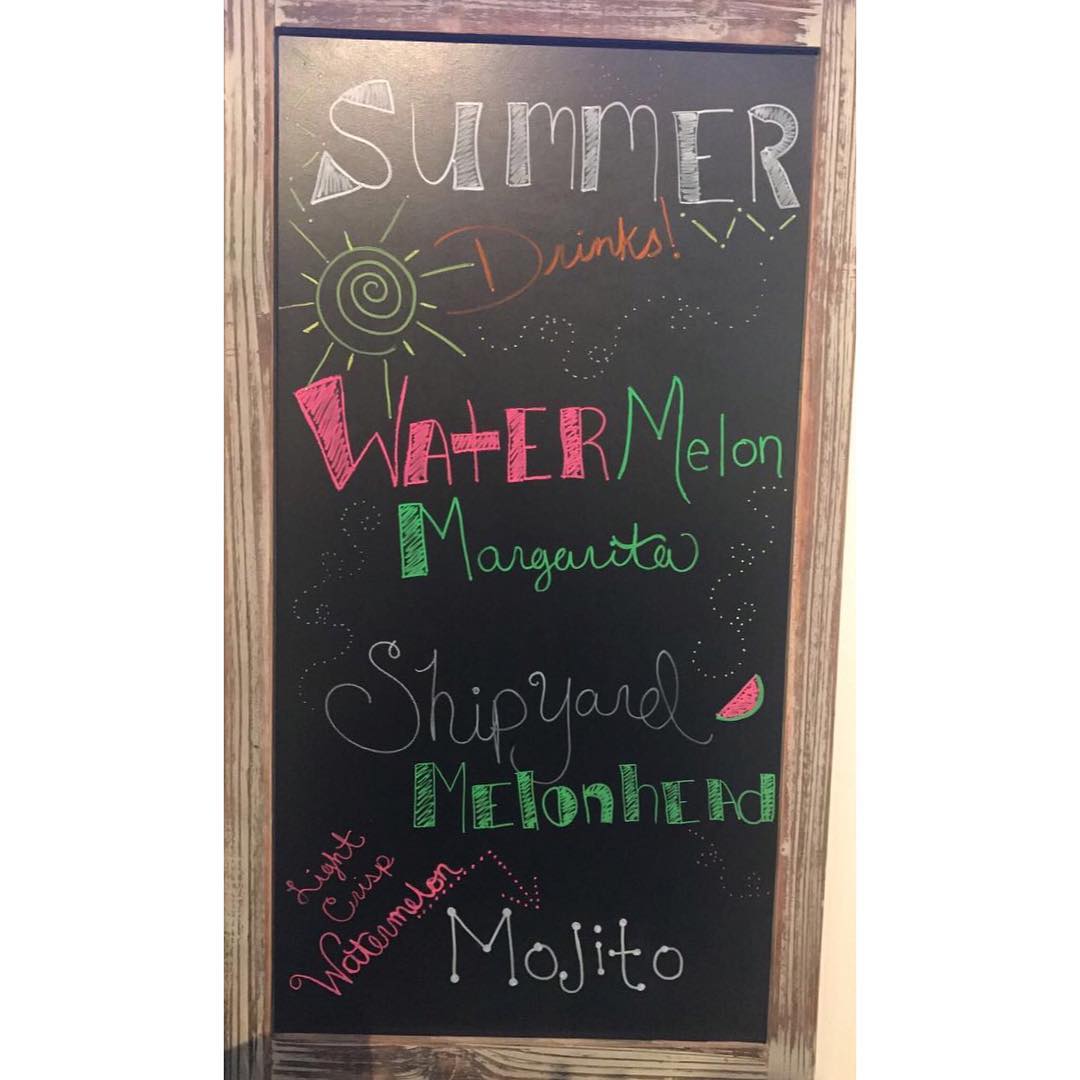 SUMMER
Drinks!
WATERMelon
Margarita
Shipyard
MElonhEAd
Light
Crisp
Watermelon
Mojito